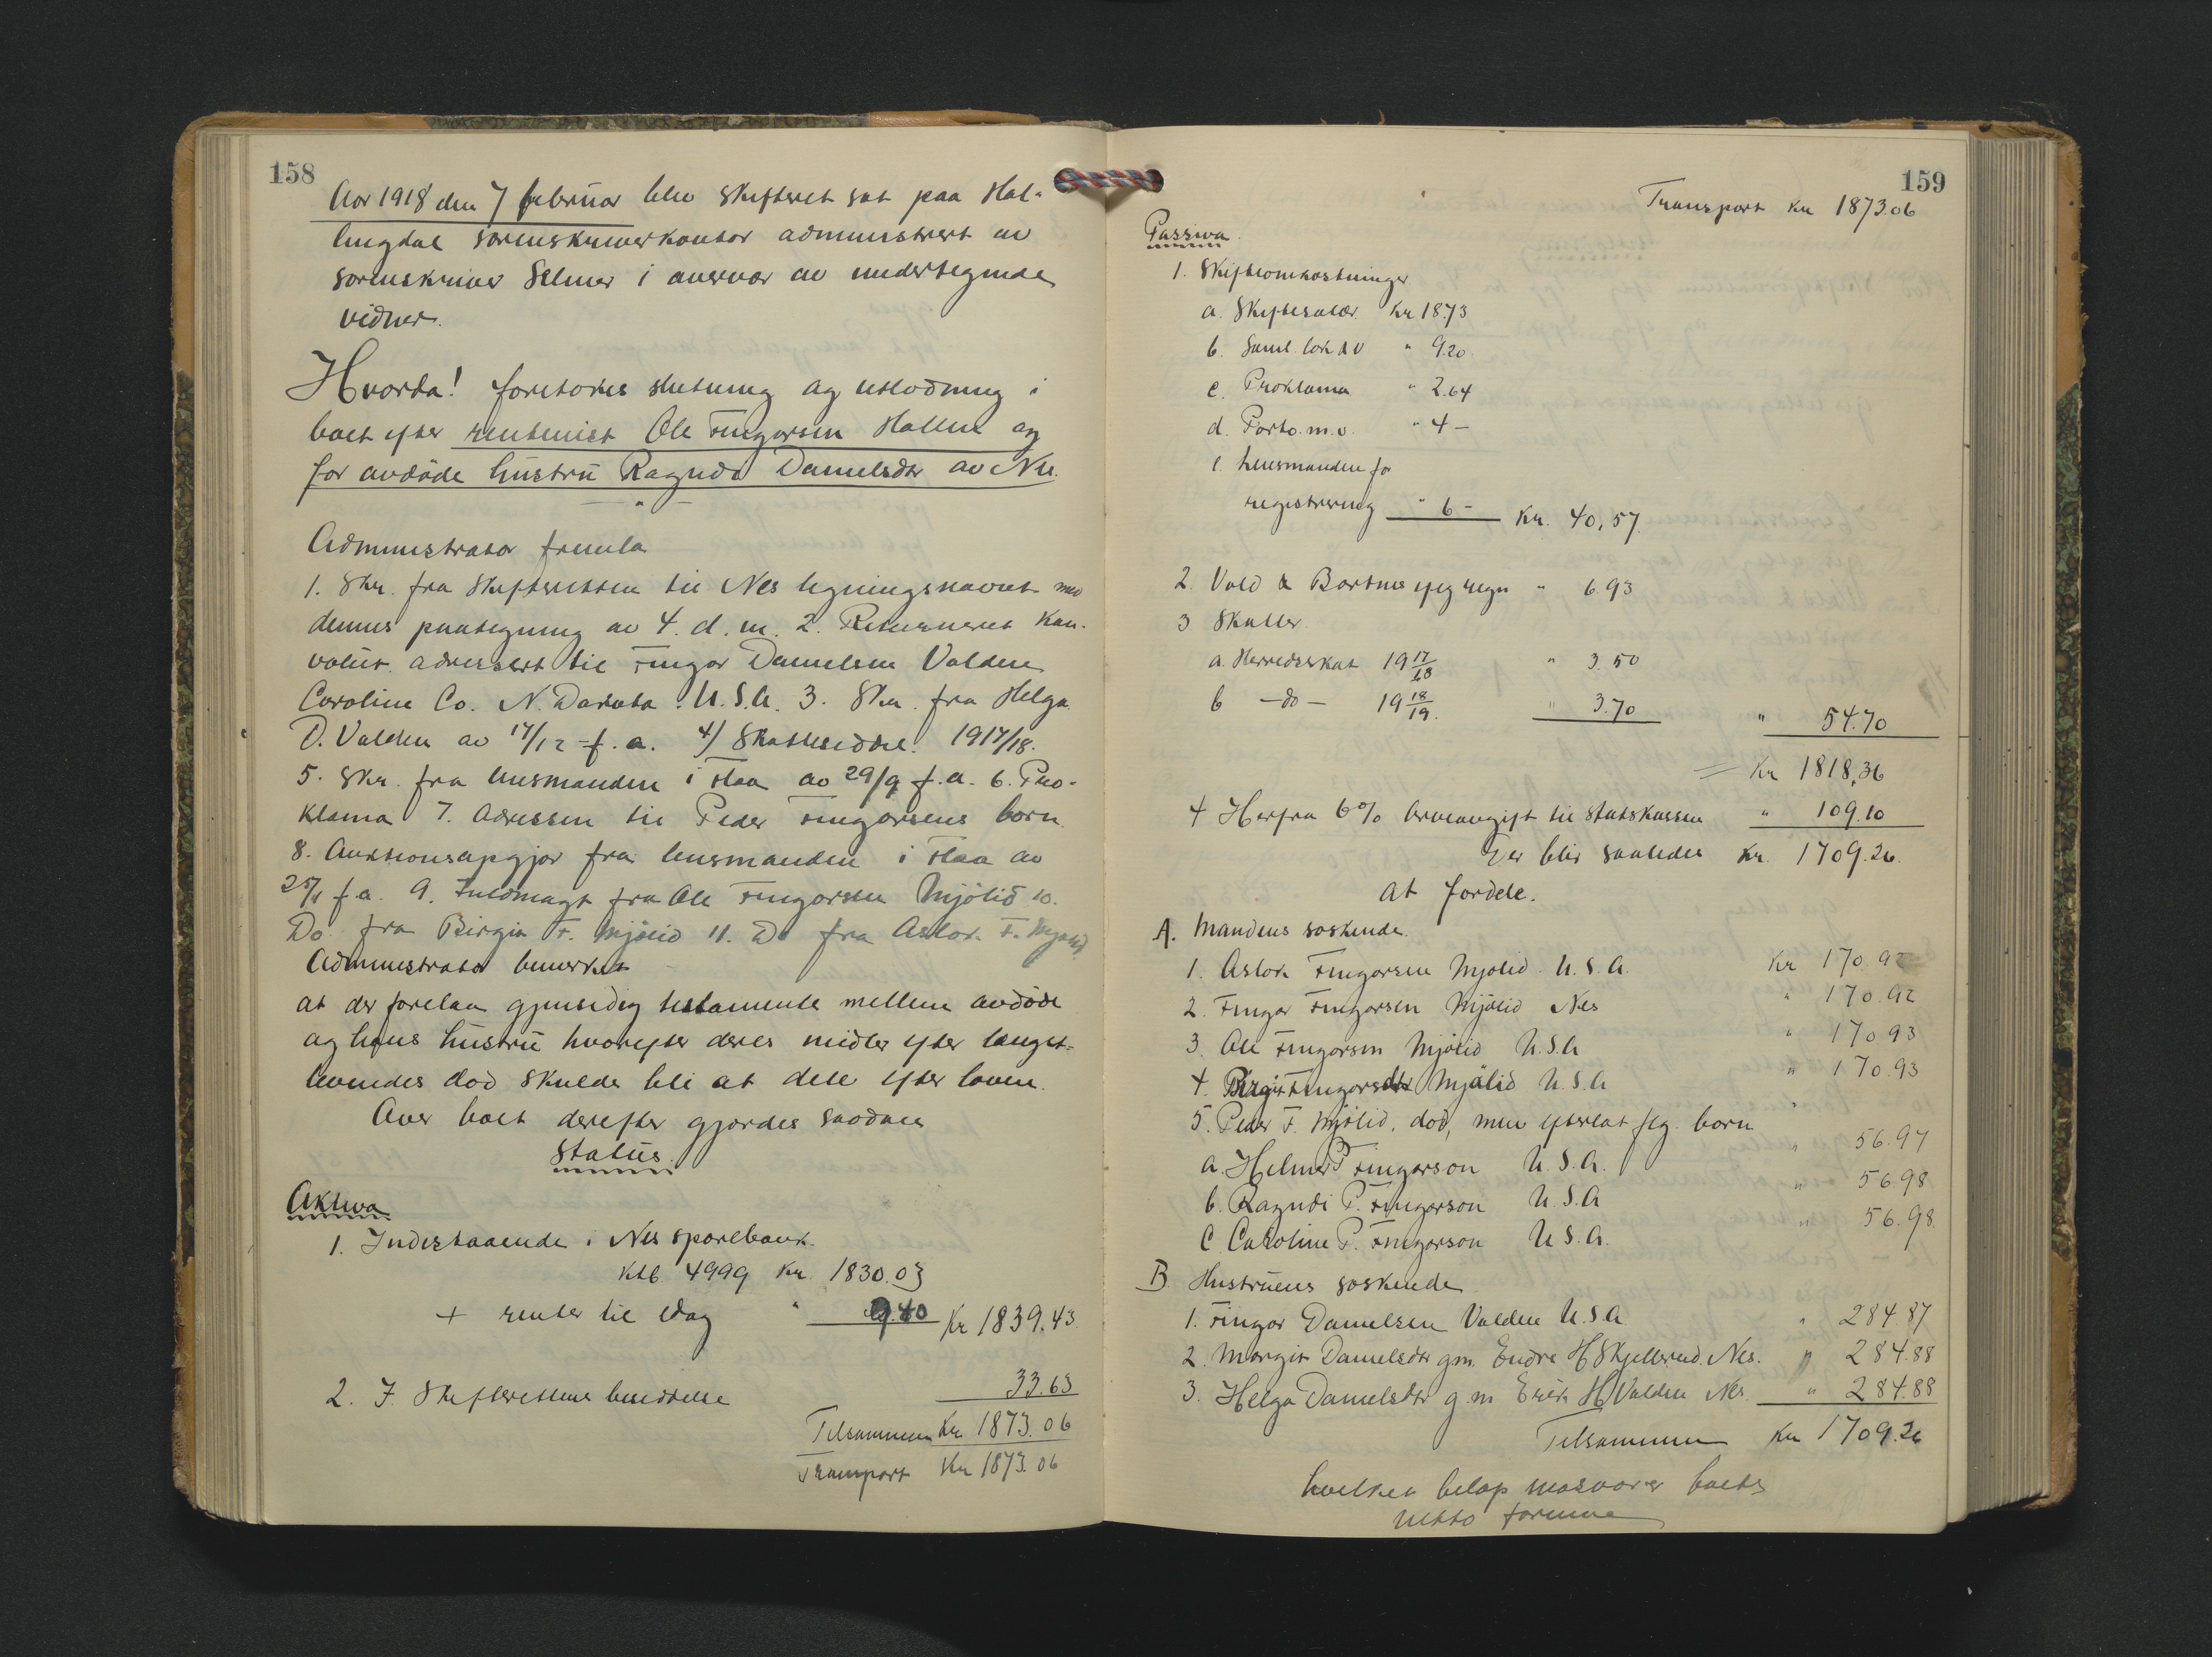 158
Aar 1918 den 7 februar blev skifteret sat paa Hal-
lingdal sorenskriverkontor administrert av
sorenskriver Selmer i overvær av undertegnede
vidner.
Hvorda! foretokes slutning og utlodning i
boet efter rentenist Ole Fingarsen Hallen og
før avdöde hustru Ragndi Danielsdtr av Nes.
Administrator fremla
1. Skr. fra skifteretten til Nes ligningsnævnt med
dennes paategning av 4. d. m. 2. Returneret kon-
volut adressert til Fingar Danielsen Valden
Caroline Co. N. Dakota U.S.A. 3. Skr. fra Helga
D. Valden av 17/12 f. a. 4/ Skatteseddel 1917/18.
5. Skr. fra lensmanden i Flaa av 29/9 f.a. 6. Pro-
klama 7. Adressen til Peder Fingarsens born
8. Auktionsopgjör fra lensmanden i Flaa av
25/1 f.a. 9. Fuldmagt fra Ole Fingarsen Mjölid 10.
Do fra Birgit F. Mjölid 11. Do fra Aslak F. Mjölid
Administrator bemerket
at der forelaa gjensidig testamente mellem avdöde
og hans hustru hvorefter deres midler efter længst-
levendes död skulde bli at dele efter loven.
Over boet derefter gjordes saadan
Status.
Aktiva
1. Indestaaende i Nes sparebank
Ktb 4999 Kr. 1830.03
+ renter til idag " 9.40 Kr 1839.43
2. I. Skifterettens besiddelse 33.63
Tilsammen Kr 1873.06
Transport Kr 1873.06
159
Transport Kr 1873.06
Passiva
1. Skifteomkostninger
a. Skiftesalær Kr 18.73
b. Saml. lov &V " 9.20
c. Proklama " 2.64
d. Porto m.v. " 4 –
e. Lensmanden for
registrering " 6 – Kr. 40,57.
2. Vold & Bortnes iflg regn " 6.93
3 Skatter
a. Herredsskat 19 17/18 " 3.50
b – do – 19 18/19. " 3.70 " 54.70
= Kr 1818,36
4 Herfra 6% arveavgift til statskassen " 109.10
Der blir saaledes Kr. 1709.26.
at fordele.
A. Mandens söskende.
1. Aslak Fingarsen Mjölid U.S.A. Kr 170.92
2. Fingar Fingarsen Mjölid Nes " 170.92
3. Ole Fingarsen Mjölid U.S.A " 170.93
4. Birgit Fingarsdtr Mjölid U.S.A " 170.93
5. Peder F. Mjölid, död, men efterlat flg. born
a. Helmer P Fingarson U.S.A. " 56.97
b. Ragndi P. Fingarson U.S.A " 56.98
c Caroline P. Fingarson U.S.A. " 56.98.
B. Hustruens söskende
1. Fingar Danielsen Valden U.S.A " 284.87
2. Margit Danielsdtr gm. Endre H Skjellerud. Nes. " 284.88
3. Helga Danielsdtr g.m Erik H Valden Nes. " 284.88
Tilsammen Kr 1709.26
hvilket belöp motsvarer boets
netto formue